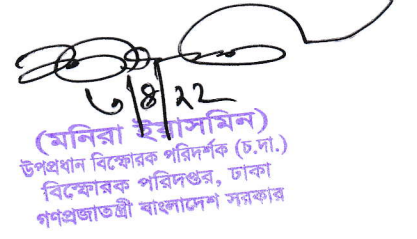 ৬/৪/২২
(মনিরা ইয়াসমিন)
উপপ্রধান বিস্ফোরক পরিদর্শক (চ.দা.)
বিস্ফোরক পরিদপ্তর, ঢাকা
গণপ্রজাতন্ত্রী বাংলাদেশ সরকার